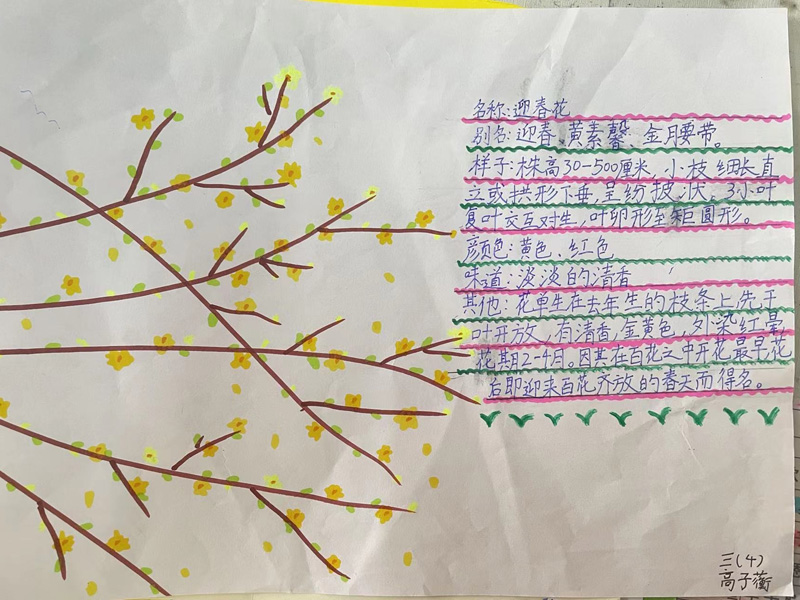 名称：迎春花
别名：迎春、黄素馨、金腰带。
样子：株高30-500厘米，小枝细长直
立或拱形下垂，呈纷披状，3小叶
复叶交互对生，叶卵形至矩圆形。
颜色：黄色、红色
味道：淡淡的清香
其他：花单生在去年生的枝条上，先于
叶开放，有清香，金黄色，外染红晕，
花期2-4月。因其在百花之中开花最早花
后即迎来百花齐放的春天而得名。
三(4)
高子蘅